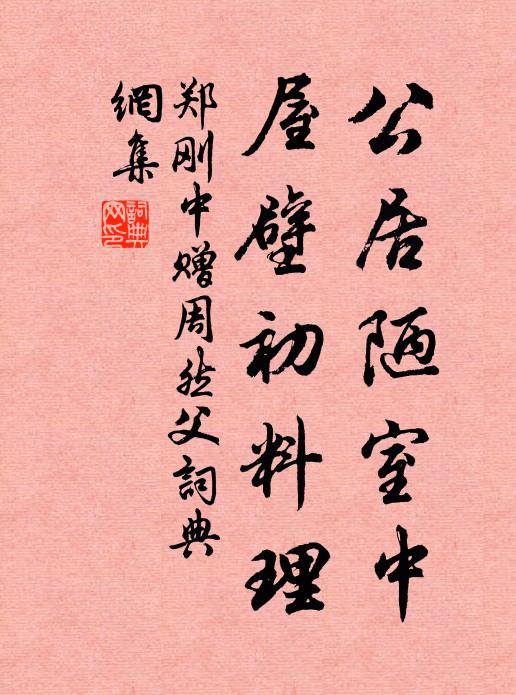 公居陋室中
屋壁初料理
郑刚中赠周然父詞典
網集
詞典
网印